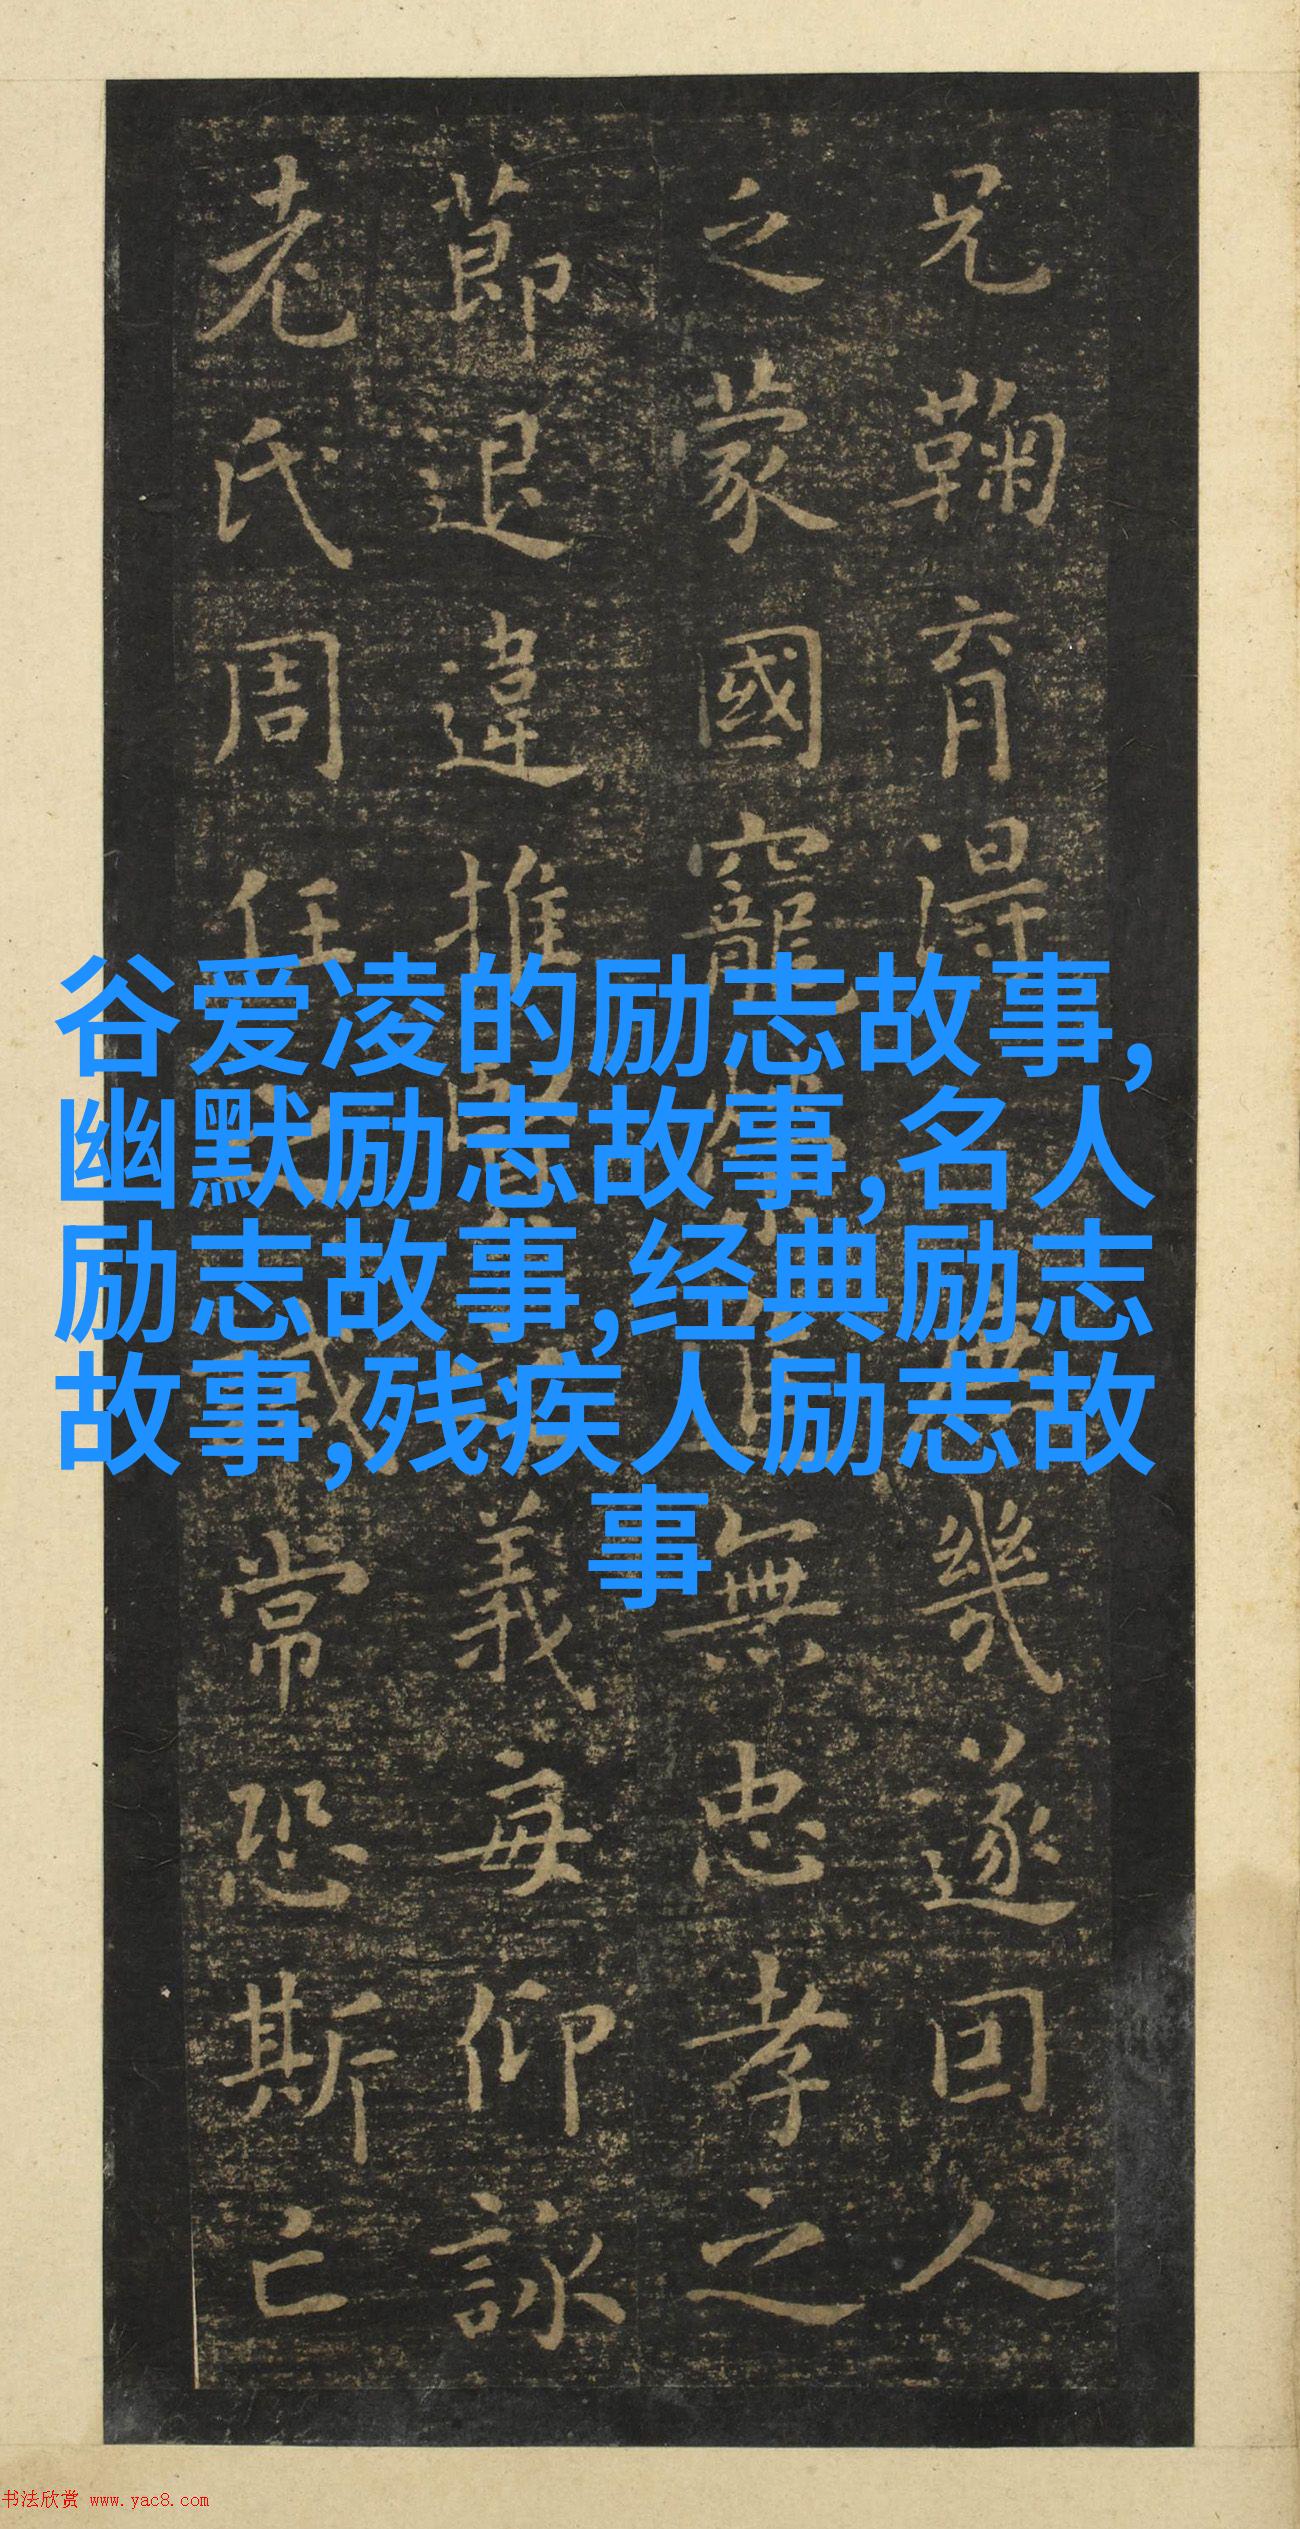 兄鞠育得庶幾遂回人
之蒙國寵榮進無忠孝之
莭退違推賢之義每仰詠
老氏周任之誡常恐斯亡
谷爱凌的励志故事,
幽默励志故事,名人
励志故事,经典励志
故事,残疾人励志故
事
书法欣赏 www.yac8.com